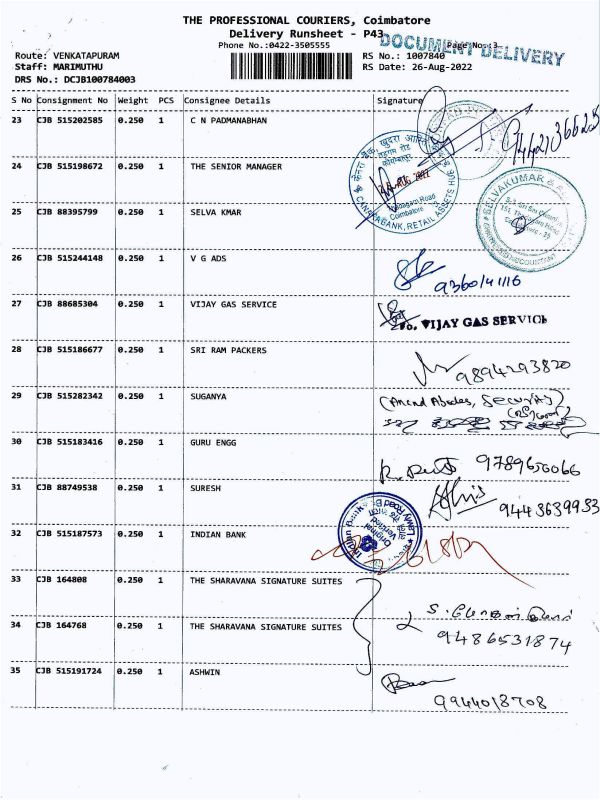 THE PROFESSIONAL COURIERS, Coimbatore
Delivery Runsheet - P43
DOCUMENT DELIVERY
Phone No.:0422-3505555
Page No.:3
Route: VENKATAPURAM
RS No.: 1007840
Staff: MARIMUTHU
RS Date: 26-Aug-2022
DRS No.: DCJB100784003
S No Consignment No Weight PCS Consignee Details Signature
23 CJB 515202585 0.250 1 C N PADMANABHAN
24 CJB 515198672 0.250 1 THE SENIOR MANAGER
CANARA BANK, RETAIL ASSETS HUB
Coimbatore
25 CJB 88395799 0.250 1 SELVA KMAR
SELVAKUMAR &
26 CJB 515244148 0.250 1 V G ADS
9360141116
27 CJB 88685304 0.250 1 VIJAY GAS SERVICE
VIJAY GAS SERVICE
28 CJB 515186677 0.250 1 SRI RAM PACKERS
9894293820
29 CJB 515282342 0.250 1 SUGANYA
Security)
30 CJB 515183416 0.250 1 GURU ENGG
9789656066
31 CJB 88749538 0.250 1 SURESH
9443639953
32 CJB 515187573 0.250 1 INDIAN BANK
Original
Verified
33 CJB 164808 0.250 1 THE SHARAVANA SIGNATURE SUITES
34 CJB 164768 0.250 1 THE SHARAVANA SIGNATURE SUITES
9486531874
35 CJB 515191724 0.250 1 ASHWIN
9944018708